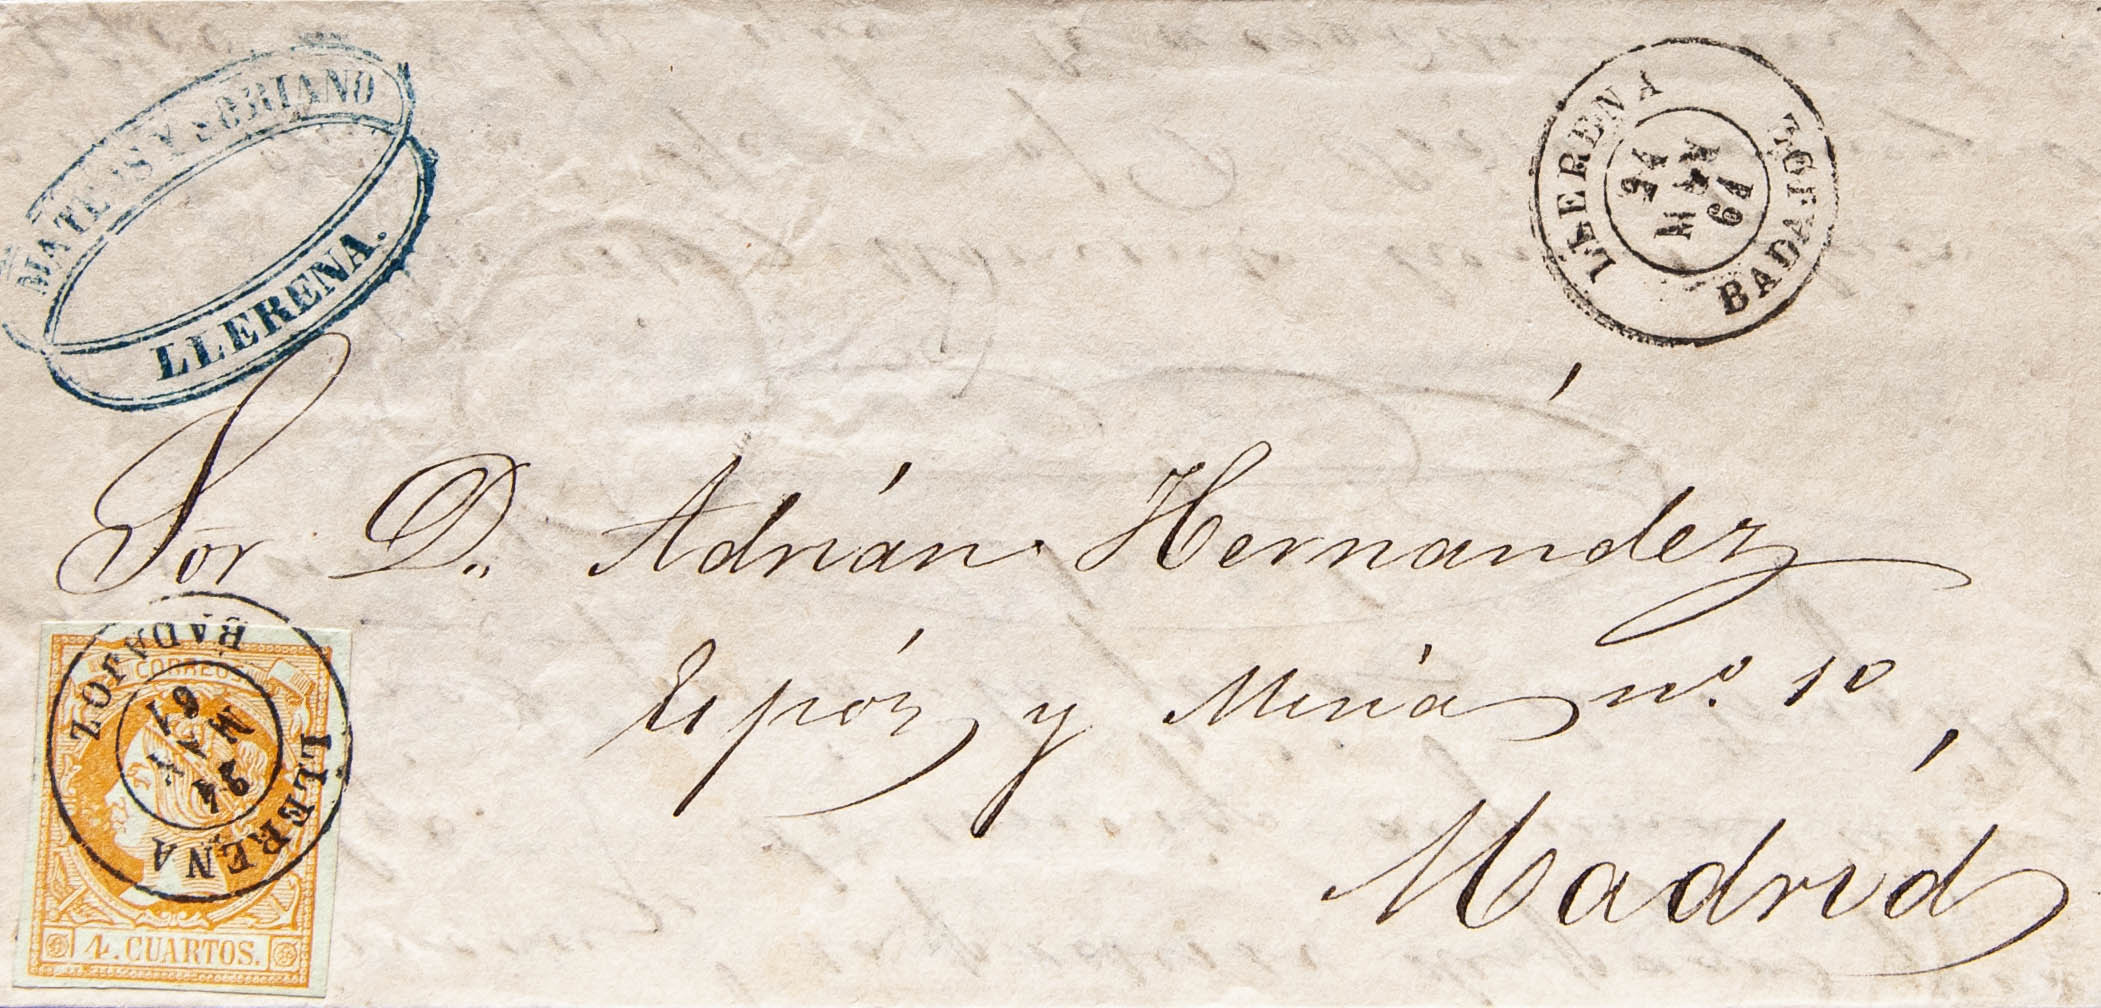 MATEOS Y SORIANO
LLERENA.
LLERENA
BADAJOZ
24
MAY
61
Sor D. Adrián Hernandez
Espóz y Mina nº 10
Madrid
CORREOS
BADAJOZ
24
MAY
61
LLERENA
4. CUARTOS.